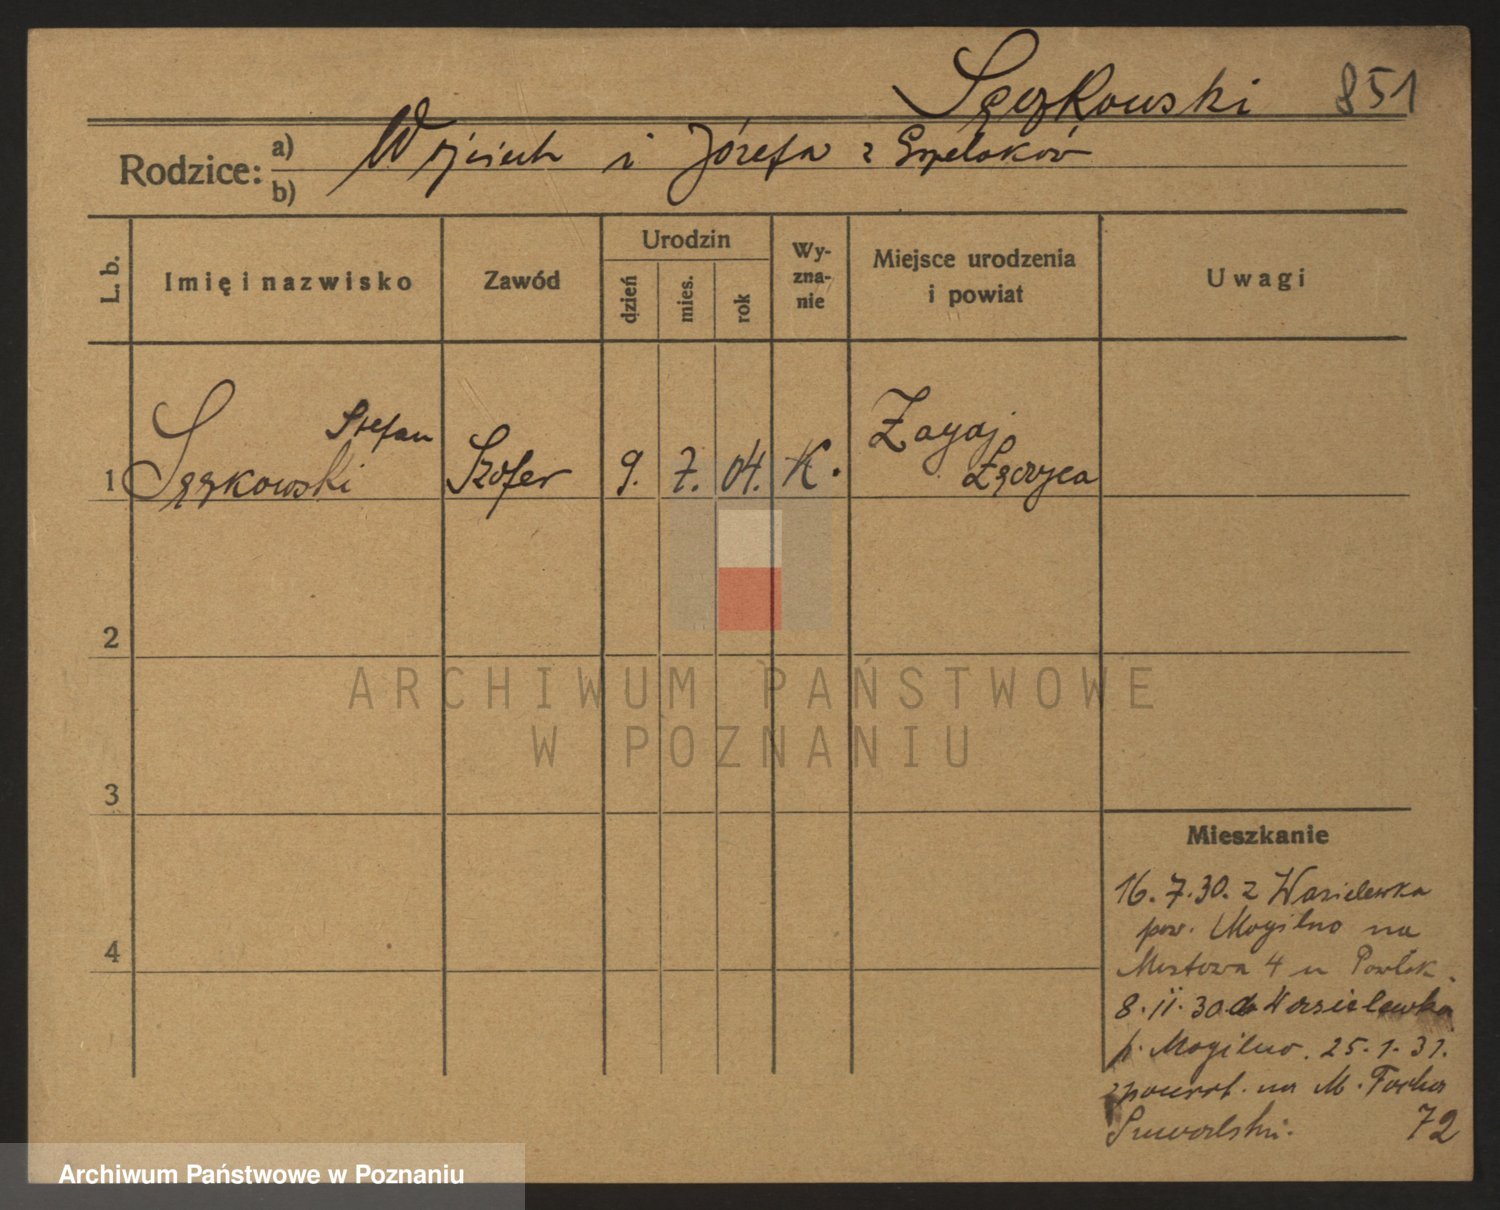 Sęczkowski 851
Rodzice: a) b) Wojciech i Józefa z Grzelaków
L. b.
Imię i nazwisko
Zawód
Urodzin
dzień
mies.
rok
Wy-
zna-
nie
Miejsce urodzenia
i powiat
Uwagi
Stefan
1 Sęczkowski Szofer 9. 7. 04. K. Zagaj
Łęczyca
2
3
4
ARCHIWUM PAŃSTWOWE
W POZNANIU
Mieszkanie
16. 7. 30. z Wasielewka
pow. Mogilno na
Mostowa 4 u
8. 11. 30 do Wasielewka
p. Mogilno. 25. 1. 31.
zpowrot. na M. Focha
72
Archiwum Państwowe w Poznaniu